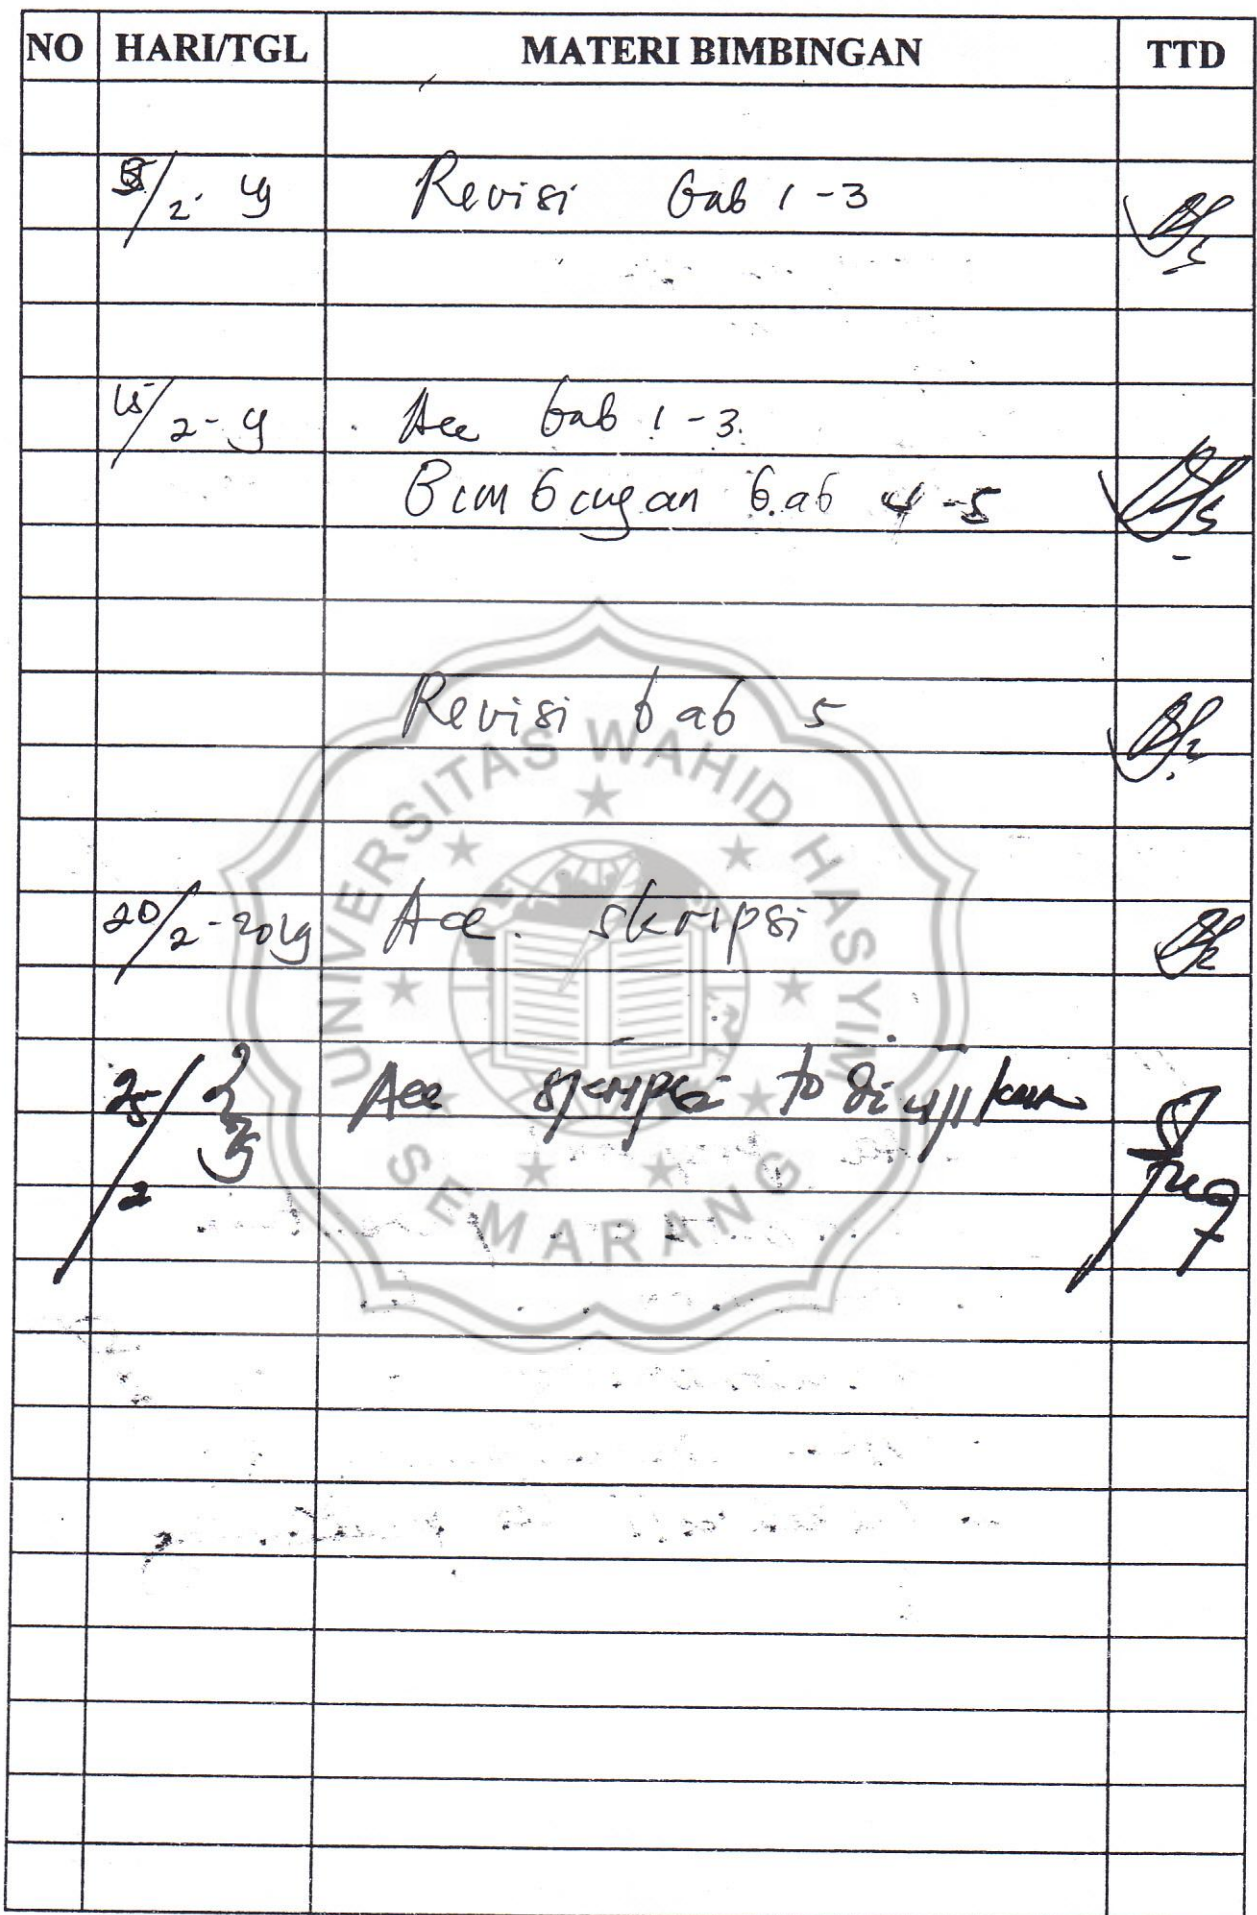 NO HARI/TGL MATERI BIMBINGAN TTD
/2-19 Revisi bab 1-3
15/2-19 Acc bab 1-3.
Bimbingan bab 4-5
Revisi bab 5
20/2-2019 Acc. skripsi
25/2 Acc skripsi diujikan
UNIVERSITAS WAHID HASYIM
SEMARANG